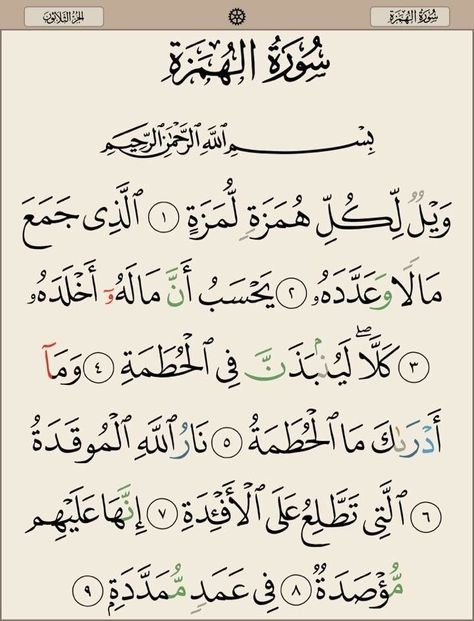 سُورَةُ الهُمَزَةِ الجُزءُ الثَّلَاثُونَ
سُورَةُ الهُمَزَةِ
بِسْمِ ٱللَّهِ ٱلرَّحْمَٰنِ ٱلرَّحِيمِ
وَيْلٌ لِّكُلِّ هُمَزَةٍ لُّمَزَةٍ ١ ٱلَّذِى جَمَعَ
مَالًا وَعَدَّدَهُۥ ٢ يَحْسَبُ أَنَّ مَالَهُۥٓ أَخْلَدَهُۥ
٣ كَلَّا ۖ لَيُنۢبَذَنَّ فِى ٱلْحُطَمَةِ ٤ وَمَآ
أَدْرَىٰكَ مَا ٱلْحُطَمَةُ ٥ نَارُ ٱللَّهِ ٱلْمُوقَدَةُ
٦ ٱلَّتِى تَطَّلِعُ عَلَى ٱلْأَفْـِٔدَةِ ٧ إِنَّهَا عَلَيْهِم
مُّؤْصَدَةٌ ٨ فِى عَمَدٍ مُّمَدَّدَةٍۭ ٩